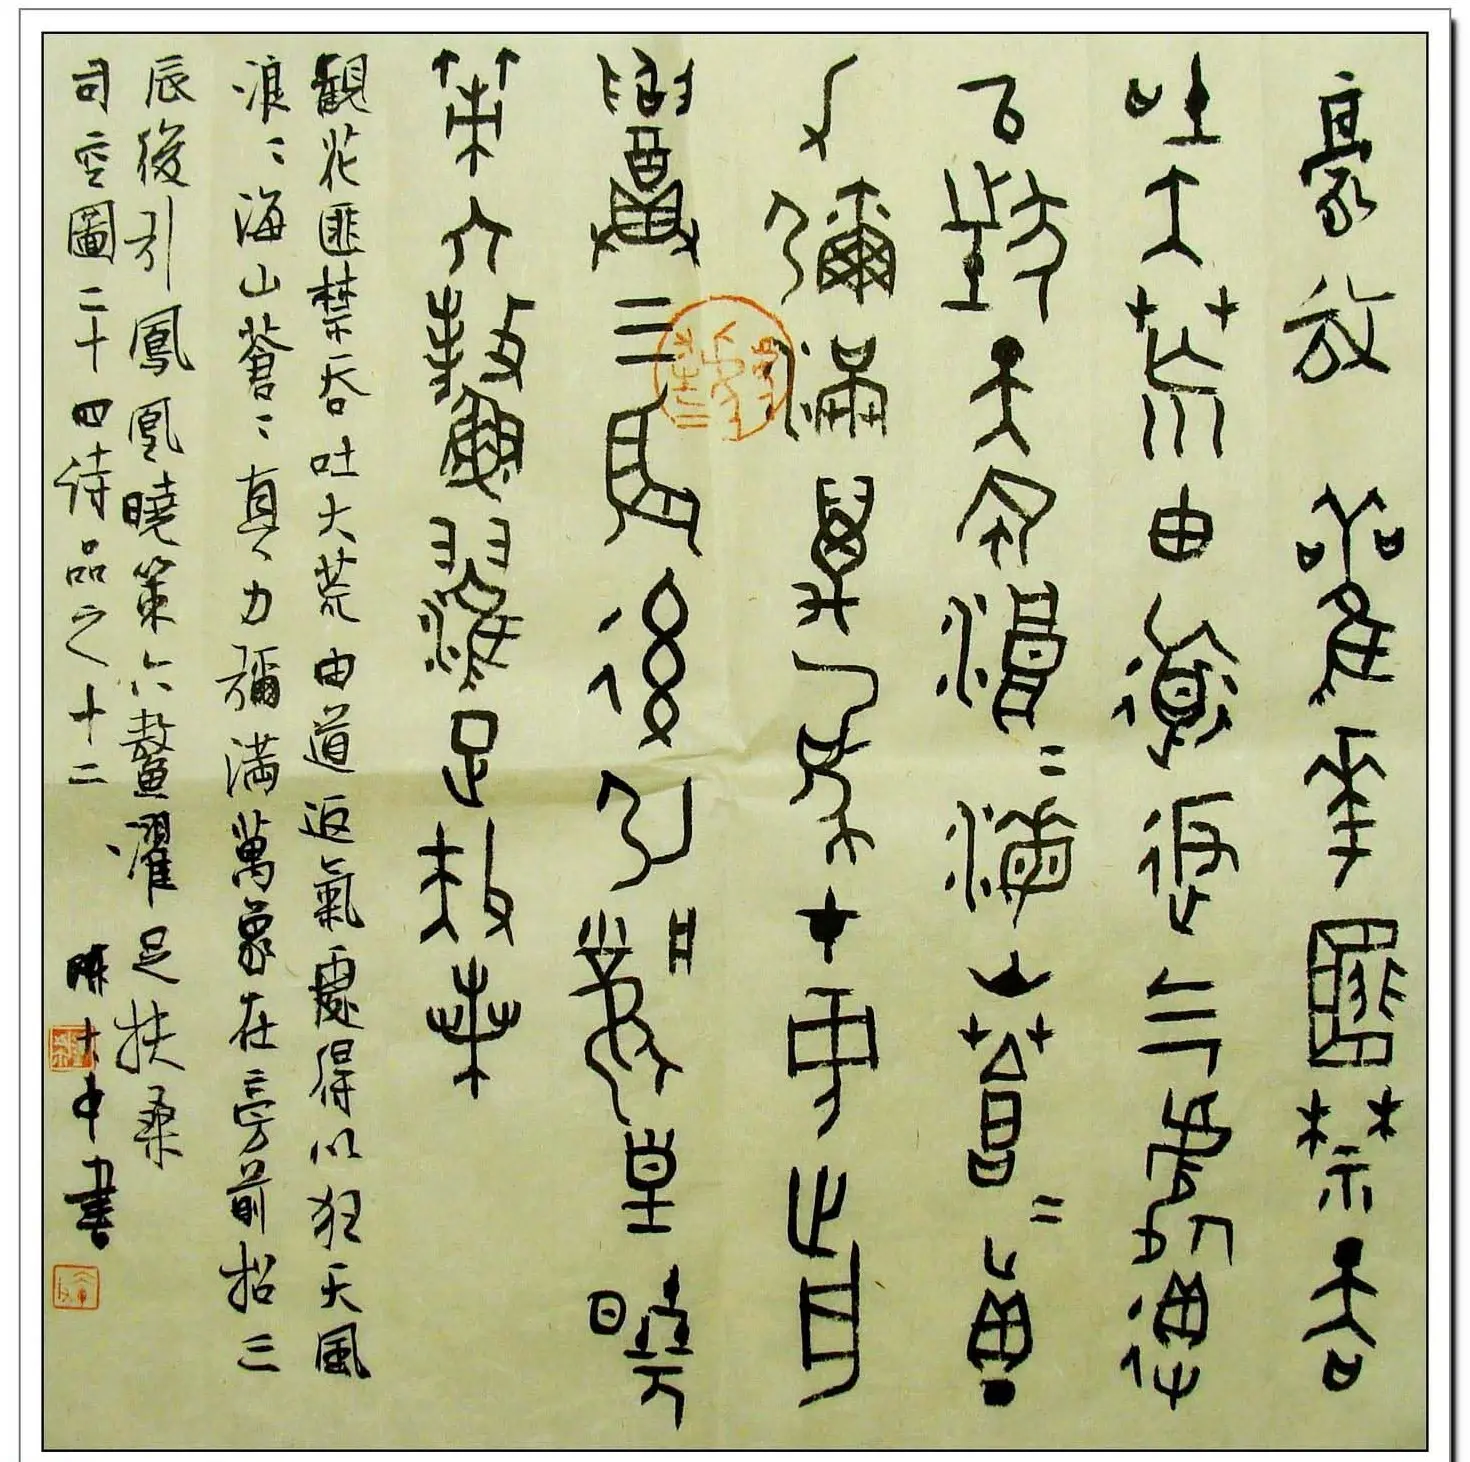 豪放 觀花匪禁吞
吐大荒由道返气處得
以狂天風浪二海山蒼二真
力彌滿萬象在旁前
招三辰後引鳳凰曉
策六鼇濯足扶桑
觀花匪禁吞吐大荒由道返氣處得以狂天風
浪二海山蒼二真力彌満萬象在旁前招三
辰後引鳳凰曉策六鼇濯足扶桑
司空圖二十四诗品之十二 陈大中書